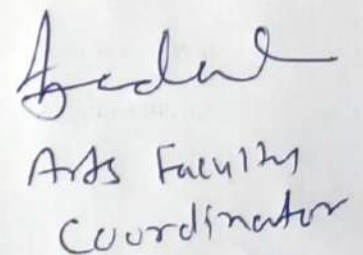 Arts Faculty
Coordinator